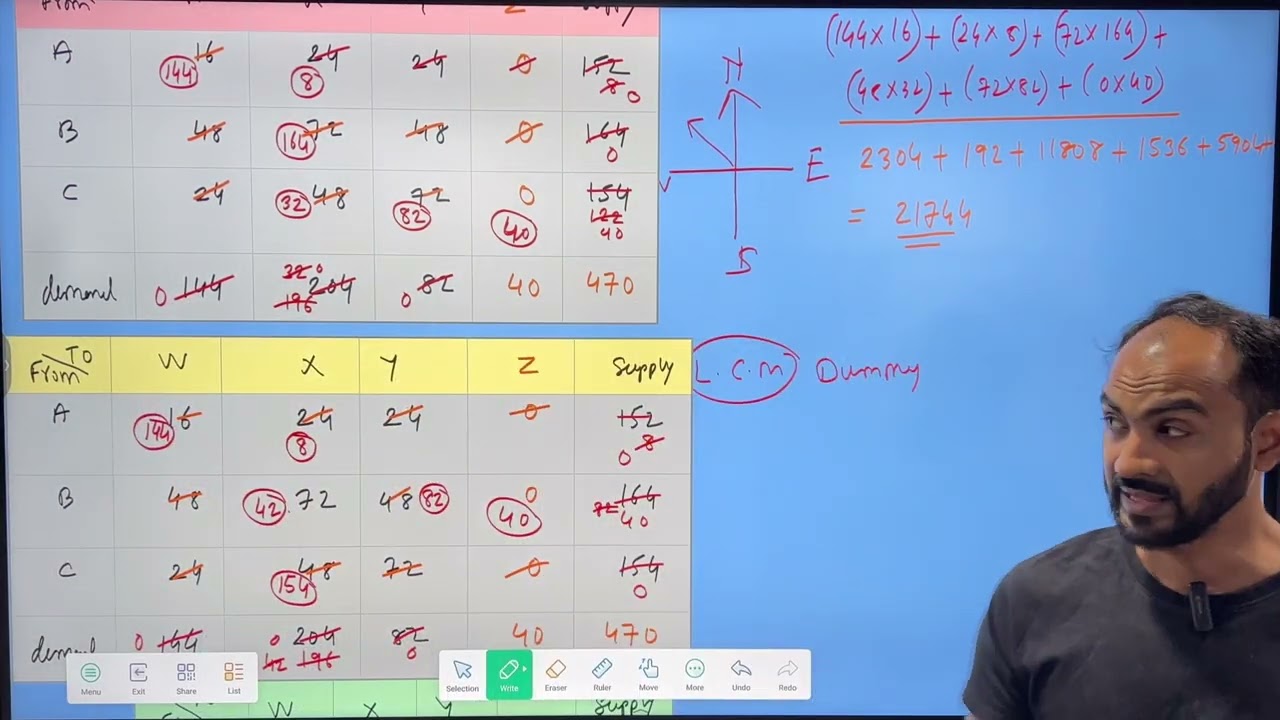 From Z Supply
A 16 24 24 0 152
144 8 8 0
B 48 72 48 0 164
164 0
C 24 48 72 0 154
32 82 40 122
40
demand 144 204 82 40 470
0 32 0 196 0
(144x16) + (24x8) + (72x164) +
(48x32) + (72x82) + (0x40)
2304 + 192 + 11808 + 1536 + 5904 +
= 21744
N
E
S
L.C.M Dummy
From TO W X Y Z Supply
A 16 24 24 0 152
144 8 0 8
B 48 72 48 0 164
42 82 40 40
C 24 48 72 0 154
154 0
demand 144 204 82 40 470
0 0 42 196 0
Menu Exit Share List
Selection Write Eraser Ruler Move More Undo Redo
W X Y Supply